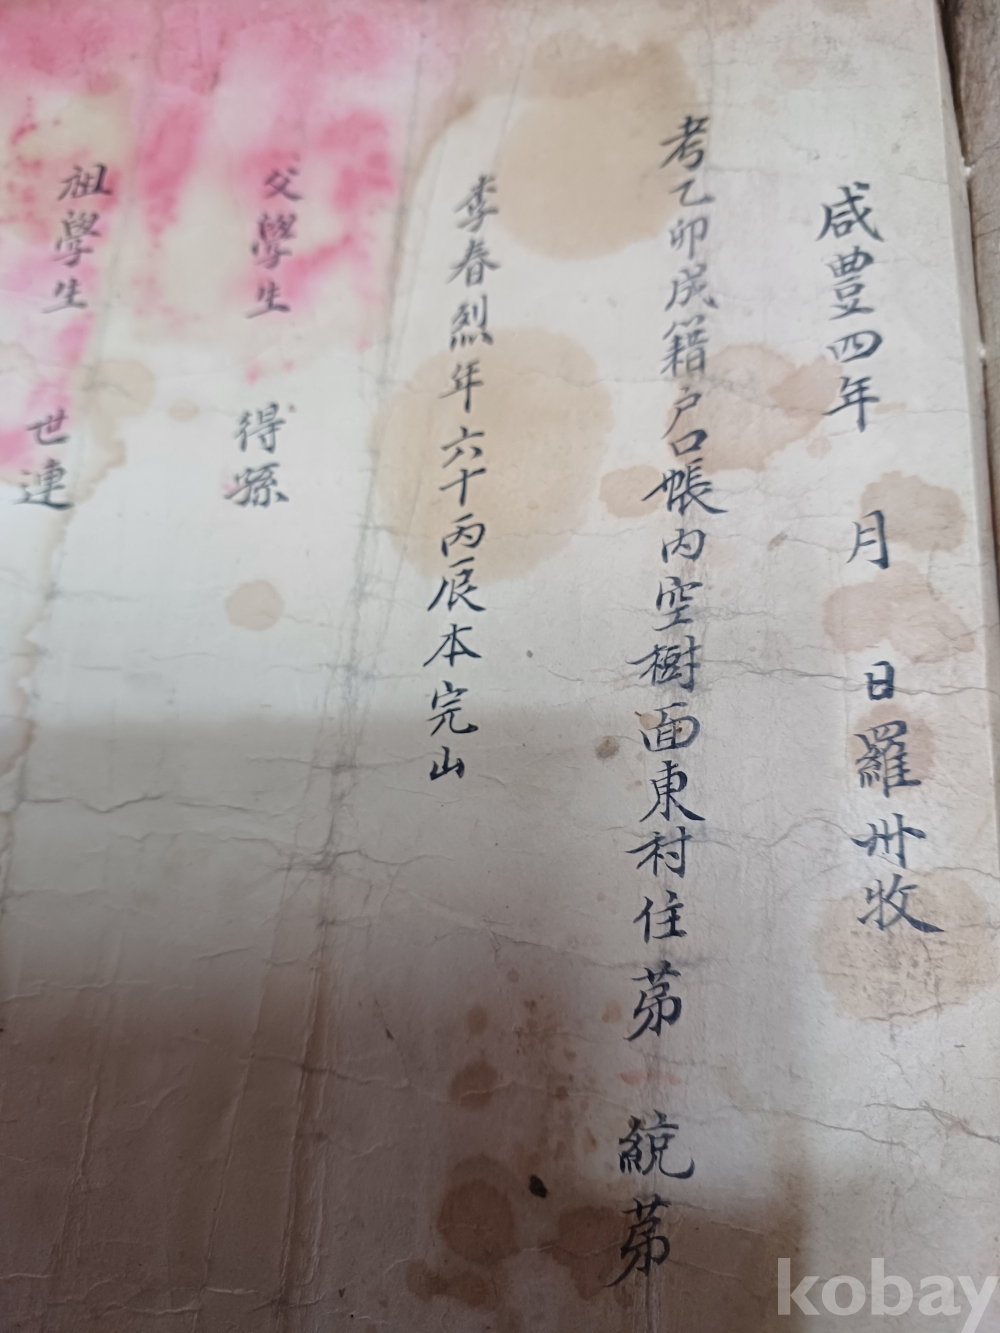 咸豊四年 月 日羅州牧
考乙卯成籍戶口帳內空樹面東村住苐 統苐
李春烈年六十丙辰本完山
父學生 得縣
祖學生 世連
kobay